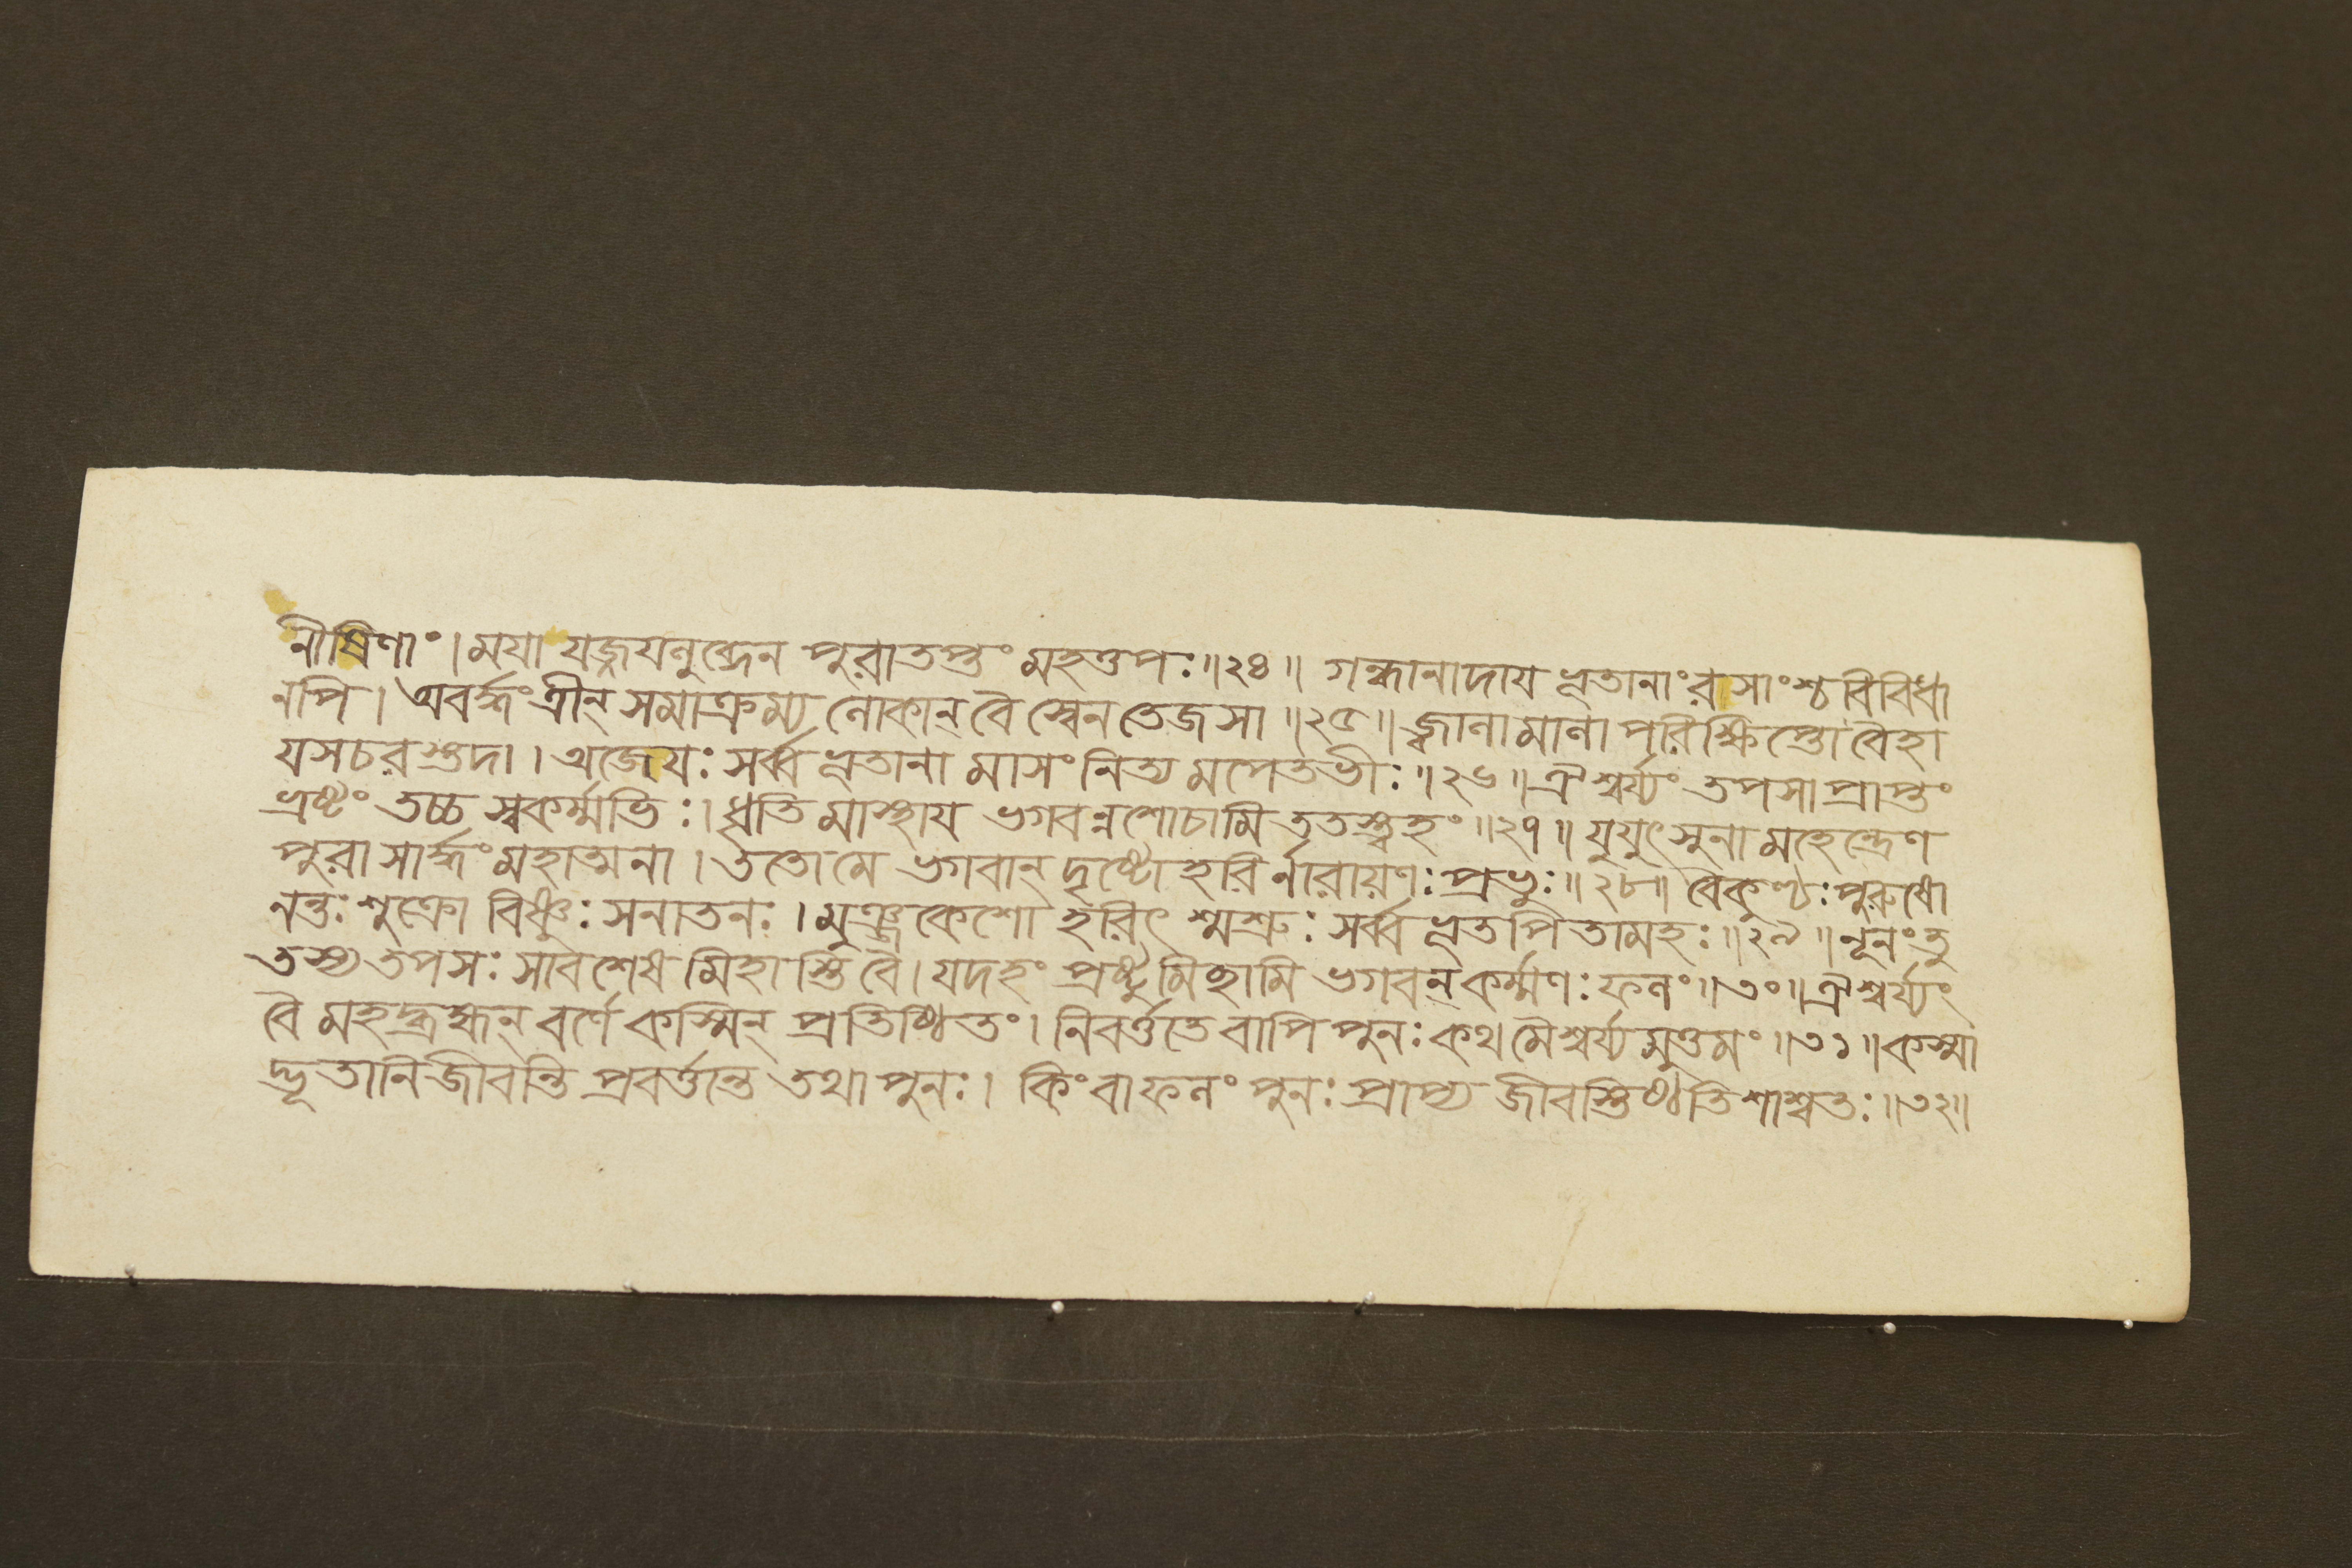 নীষিণাং । ময়া যজ্জয়লুব্ধেন পুরাতপ্তং মহত্তপঃ ॥ ২৪ ॥ গন্ধানাদায ভূতানাং রসাংশ্চ বিবিধা
নপি । অবর্দ্ধং ত্রীন্ সমাক্রম্য লোকান্ বৈ স্বেন তেজসা ॥ ২৫ ॥ জ্বালামালা পরিক্ষিপ্তো বৈহা
যসচরস্তদা । অজেযঃ সর্ব্বভূতানা মাসং নিত্য মপেতভীঃ ॥ ২৬ ॥ ঐশ্বর্য্যং তপসা প্রাপ্তং
ভ্রষ্টং তচ্চ স্বকর্ম্মভিঃ । ধৃতি মাস্থায ভগবন্নশোচামি ততস্ত্বহং ॥ ২৭ ॥ যুযুৎসুনা মহেন্দ্রেণ
পুরা সার্দ্ধং মহাত্মনা । ততো মে ভগবান্ দৃষ্টো হরির্নারায়ণঃ প্রভুঃ ॥ ২৮ ॥ বৈকুণ্ঠঃ পুরুষো
নন্তঃ শুক্রো বিষ্ণুঃ সনাতনঃ । মুঞ্জকেশো হরিৎ শ্মশ্রুঃ সর্ব্বভূতপিতামহঃ ॥ ২৯ ॥ নূনং তু
তস্য তপসঃ সাবশেষ মিহাস্তি বৈ । যদহং প্রষ্টুমিচ্ছামি ভগবন্ কর্ম্মণঃ ফলং ॥ ৩০ ॥ ঐশ্বর্য্যং
বৈ মহদ্ব্রহ্মন্ বর্ণে কস্মিন্ প্রতিষ্ঠিতং । নিবর্ত্ততে বাপি পুনঃ কথ মৈশ্বর্য্য মুত্তমং ॥ ৩১ ॥ কস্মা
দ্ভূতানি জীবন্তি প্রবর্ত্তন্তে তথা পুনঃ । কিং বা ফলং পুনঃ প্রাপ্য জীবস্তিষ্ঠতি শাশ্বতঃ ॥ ৩২ ॥